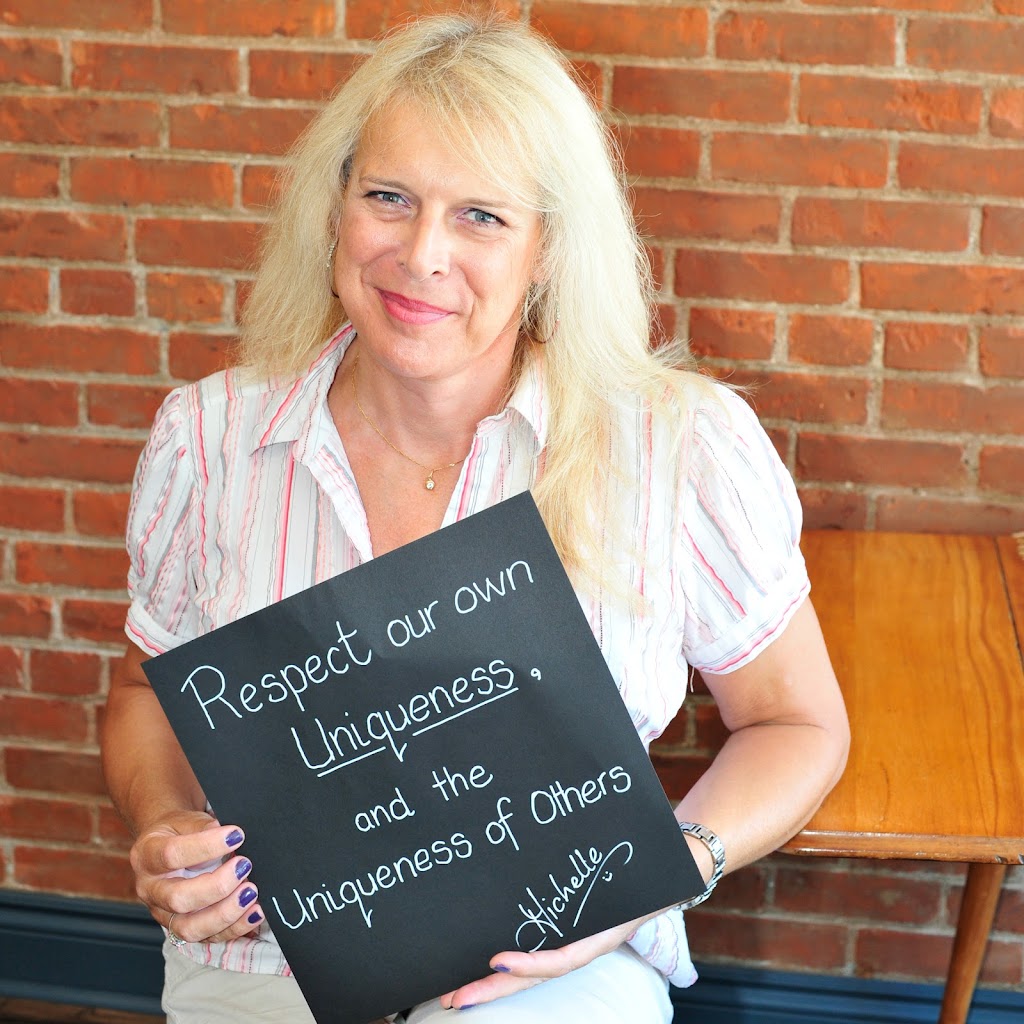 Respect our own
Uniqueness,
and the
Uniqueness of Others
Michelle